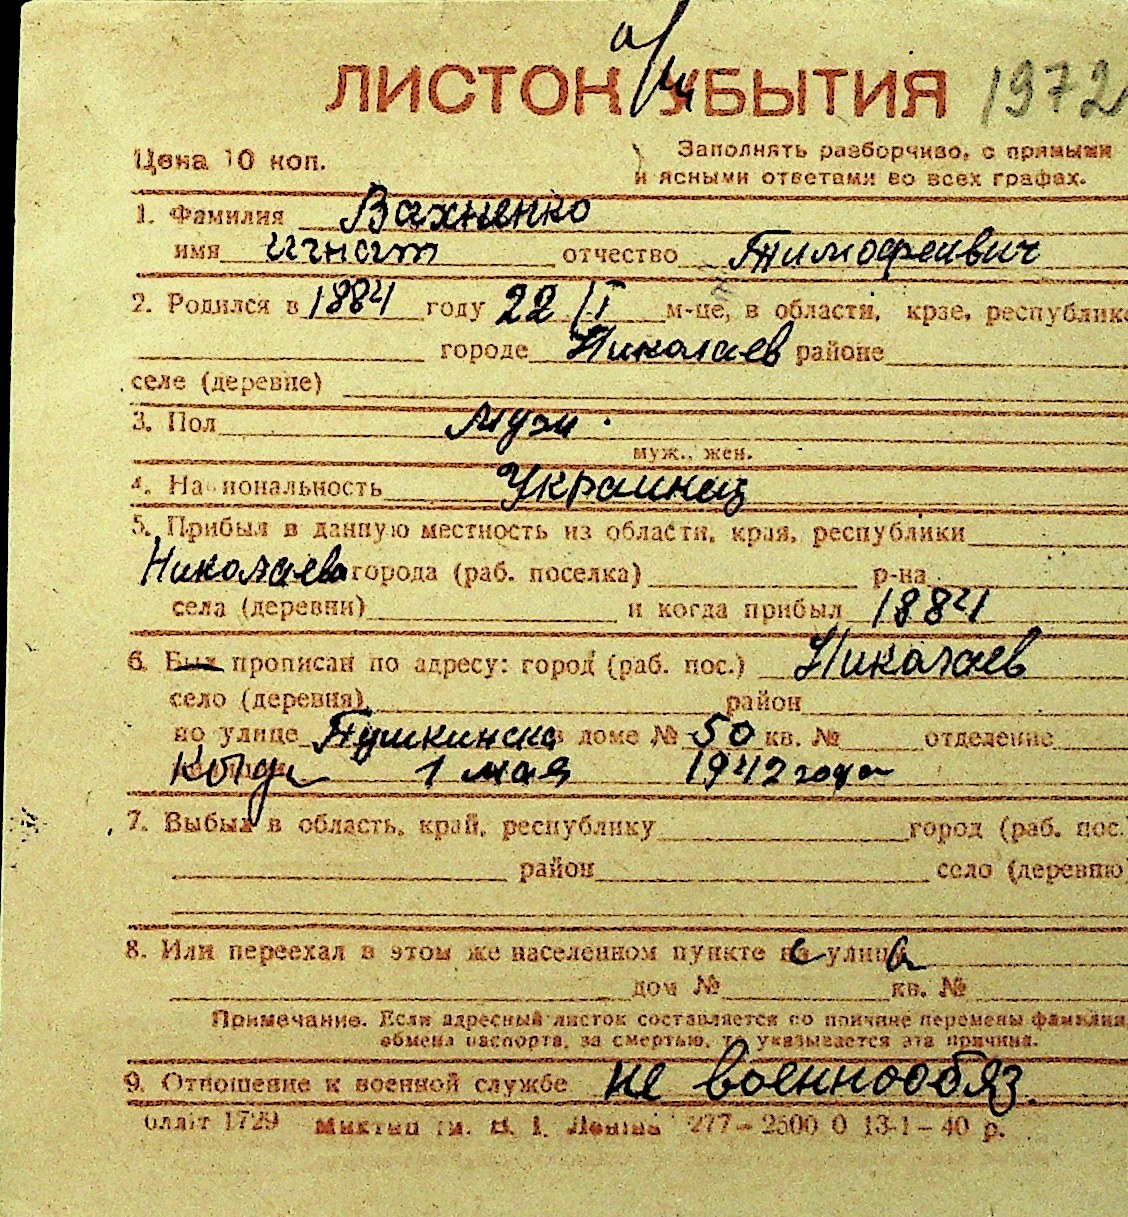 ЛИСТОК УБЫТИЯ 1972
Цена 10 коп.
Заполнять разборчиво, с прямыми
и ясными ответами во всех графах.
1. Фамилия Вахненко
имя Игнат отчество Тимофеивич
2. Родился в 1884 году 22/I м-це, в области, крае, республике
городе Николаев районе
селе (деревне)
3. Пол муж.
муж., жен.
4. Национальность Украинец
5. Прибыл в данную местность из области, края, республики
Николаева города (раб. поселка) р-на
села (деревни) и когда прибыл 1884
6. Был прописан по адресу: город (раб. пос.) Николаев
село (деревня) район
по улице Пушкинска в доме № 50 кв. № отделение
Когда 1 мая 1942 года
7. Выбыл в область, край, республику город (раб. пос.)
район село (деревню)
8. Или переехал в этом же населенном пункте с улица
дом № кв. №
Примечание. Если адресный листок составляется по причине перемены фамилии,
обмена паспорта, за смертью, то указывается эта причина.
9. Отношение к военной службе не военнообяз.
1729 277–2500 0 13-1–40 р.